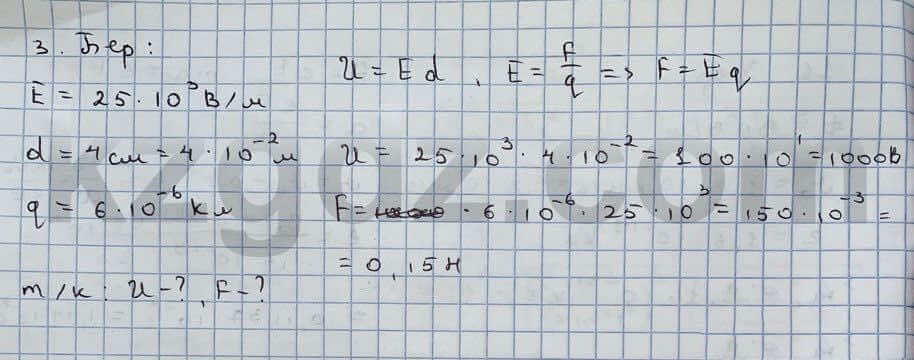 3. Бер:
E = 25·10³ В/м
d = 4 см = 4·10⁻² м
q = 6·10⁻⁶ Кл
т/к: U-?, F-?
U = E d, E = F/q => F = E q
U = 25·10³·4·10⁻² = 100·10¹ = 1000В
F = ·6·10⁻⁶·25·10³ = 150·10⁻³ =
= 0,15Н
kzgdz.com